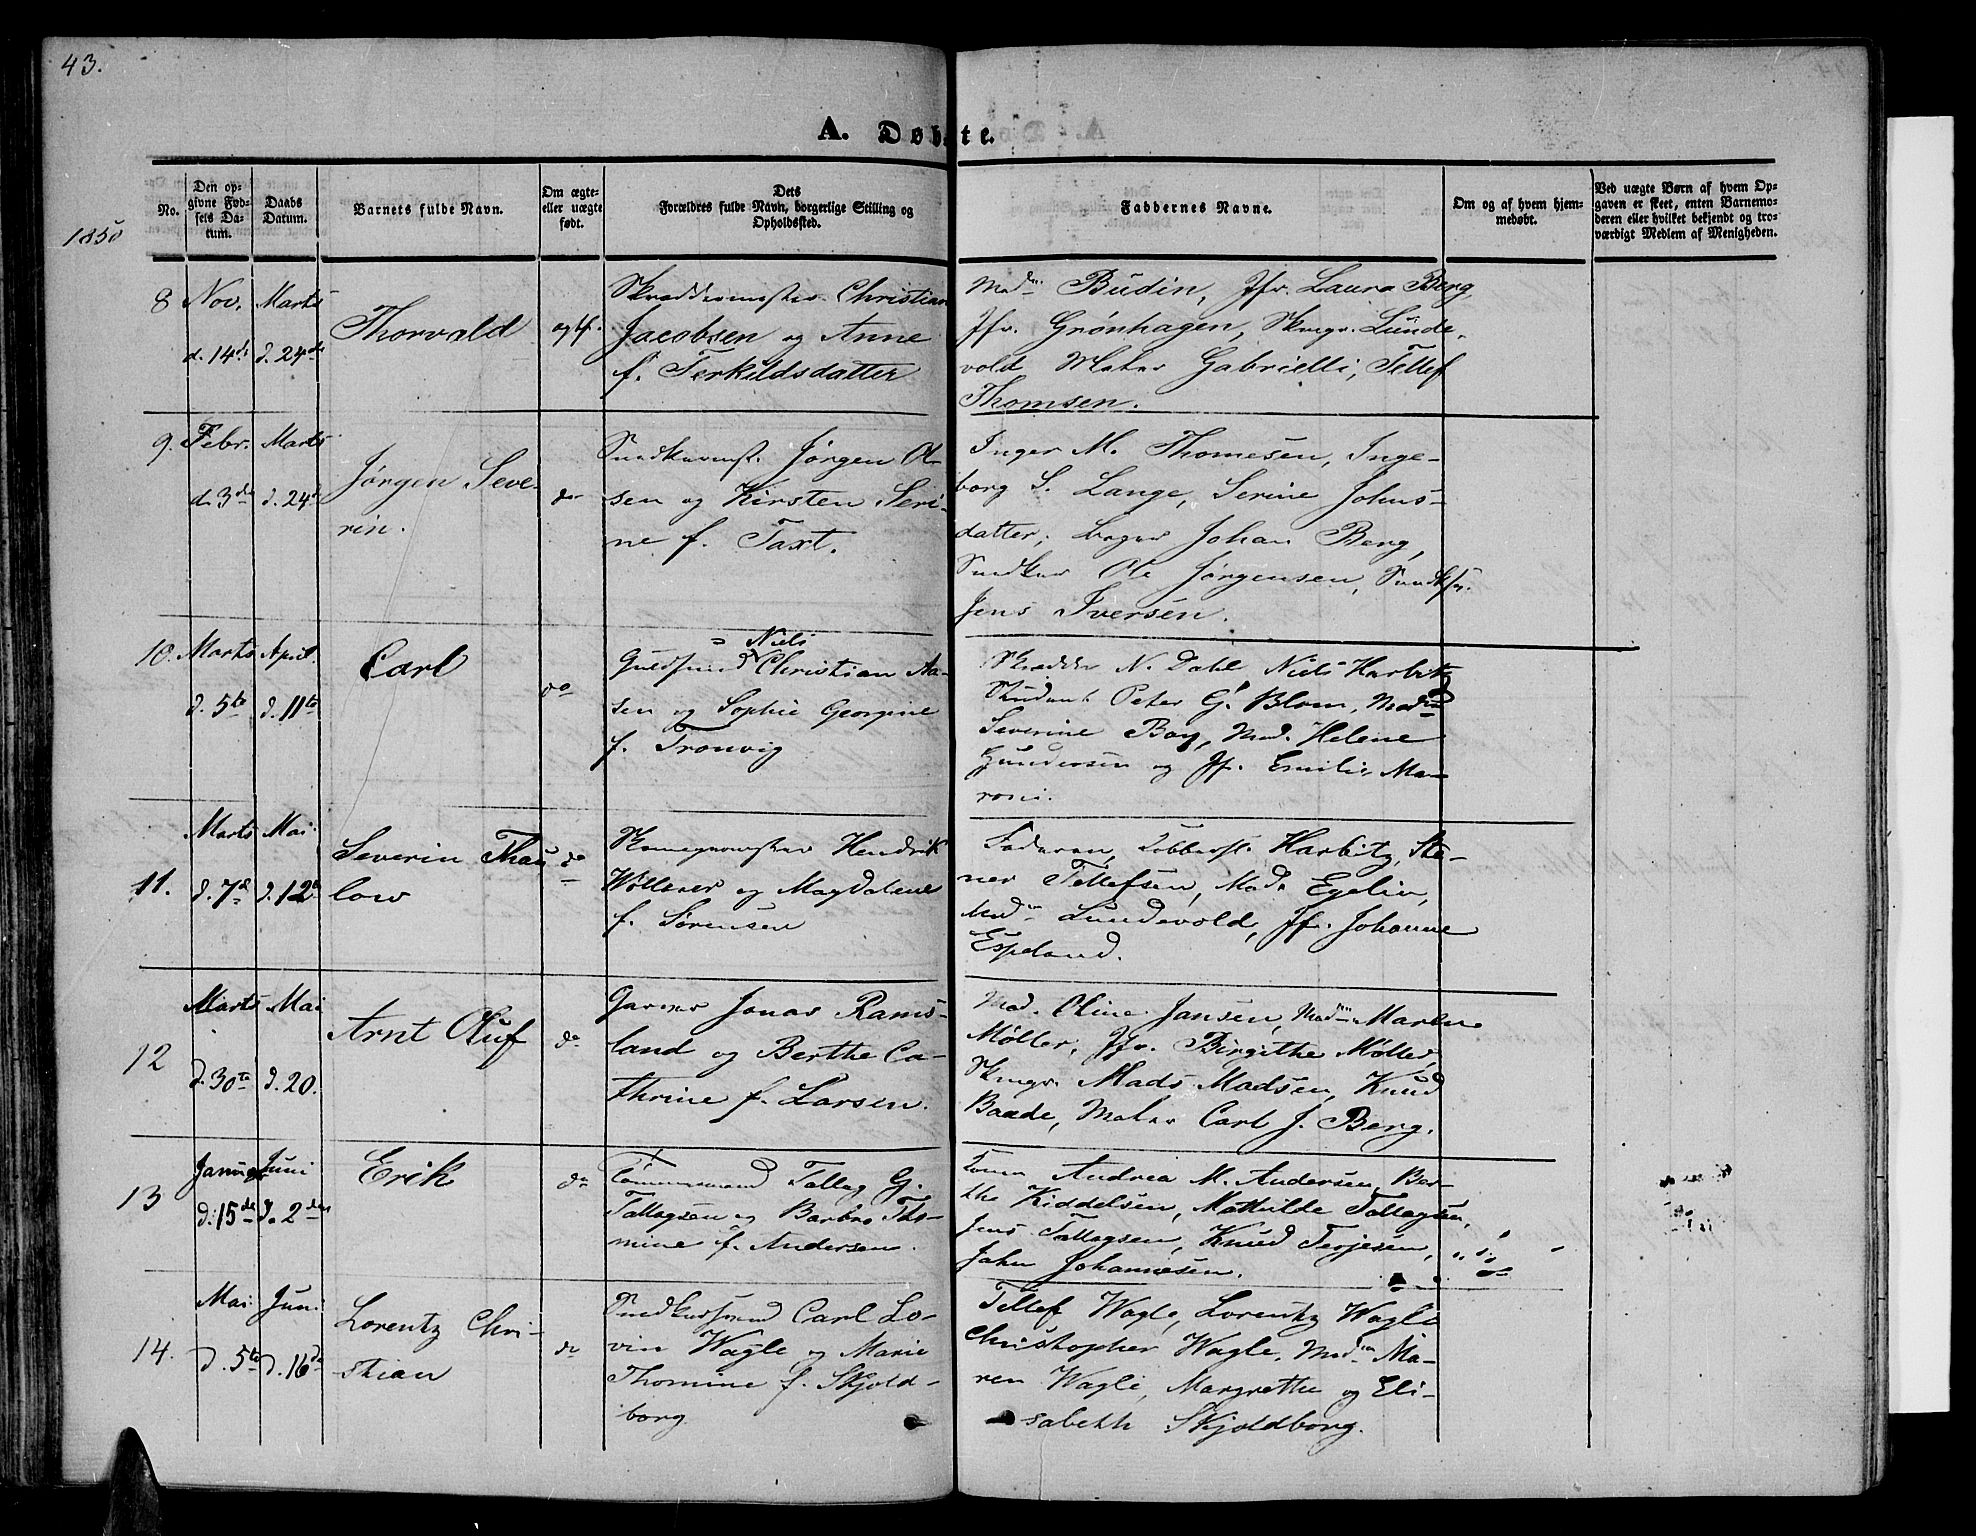 43.
A. Døbte.
No.
Den op-
givne Fød-
sels Da-
tum.
Daabs
Datum.
Barnets fulde Navn.
Om ægte-
eller uægte
født.
Dets
Forældres fulde Navn, borgerlige Stilling og
Opholdssted.
Faddernes Navne.
Om og af hvem hjem-
medøbt.
Ved uægte Børn af hvem Op-
gaven er skeet, enten Barnemo-
deren eller hvilket bekjendt og tro-
værdigt Medlem af Menigheden.
1850
8 Nov. d. 14de
Marts d. 24de
Thorvald
ægt.
Christian
Jacobsen og Anne
f. Terkildsdatter
Madm Budin, Jfr. Laura Berg
Jfr. Grønhagen, Skmgr. Lunde-
vold Maler Gabrielli, Tellef
Thomsen.
9. Febr. d. 3die
Marts d. 24de
Jørgen Seve-
rin.
do
Snedkermst. Jørgen Ol-
sen og Kirsten Seri-
ne f. Taxt.
Inger M. Thomesen, Inge-
borg S. Lange, Serine Johns-
datter, Bager Johan Berg,
Snedker Ole Jørgensen,
Jens Iversen.
10. Marts d. 5te
April d. 11te
Carl
do
Niels
Guldsmed Christian Aa-
sen og Sophie Georgine
f. Tronvig
Skrædder N. Dahl, Niels Harbitz
Student Peter G. Blom, Madm
Severine Boy, Mad. Helene
Gundersen og Jf. Emilie Ma-
roni.
11. Marts d. 7de
Mai d. 12te
Severin Thau-
low
do
Hendrik
Wøllner og Magdalene
f. Sørensen
Faderen, Harbitz, Ste-
ner Tellefsen, Mad. Egelin,
Madm Lundevold, Jf. Johanne
Espeland.
12 Marts d. 30te
Mai d. 20.
Arnt Oluf
do
Garver Jonas Rams-
land og Berthe Ca-
thrine f. Larsen.
Mad. Oline Jansen, Madm Maren
Møller, Jfr. Birgithe Møller,
Skmgr. Mads Madsen, Knud
Baade, Maler Carl J. Berg.
13 Januar d. 15de
Juni d. 2den
Erik
do
Tømmermand Tallag G.
Tallagsen og Barbro Tho-
mine f. Andersen.
Andrea M. Andersen, Ber-
the Kiddelsen, Mathilde Tallagsen,
Jens Tallagsen, Knud Terjesen,
John Johannesen.
14. Mai d. 5te
Juni d. 16de
Lorentz Chri-
stian
do
Snedkersvend Carl Lo-
vin Wagle og Marie
Thomine f. Skjold-
borg
Tellef Wagle, Lorentz Wagle
Christopher Wagle, Madm Ma-
ren Wagle, Margrethe og Eli-
sabeth Skjoldborg.